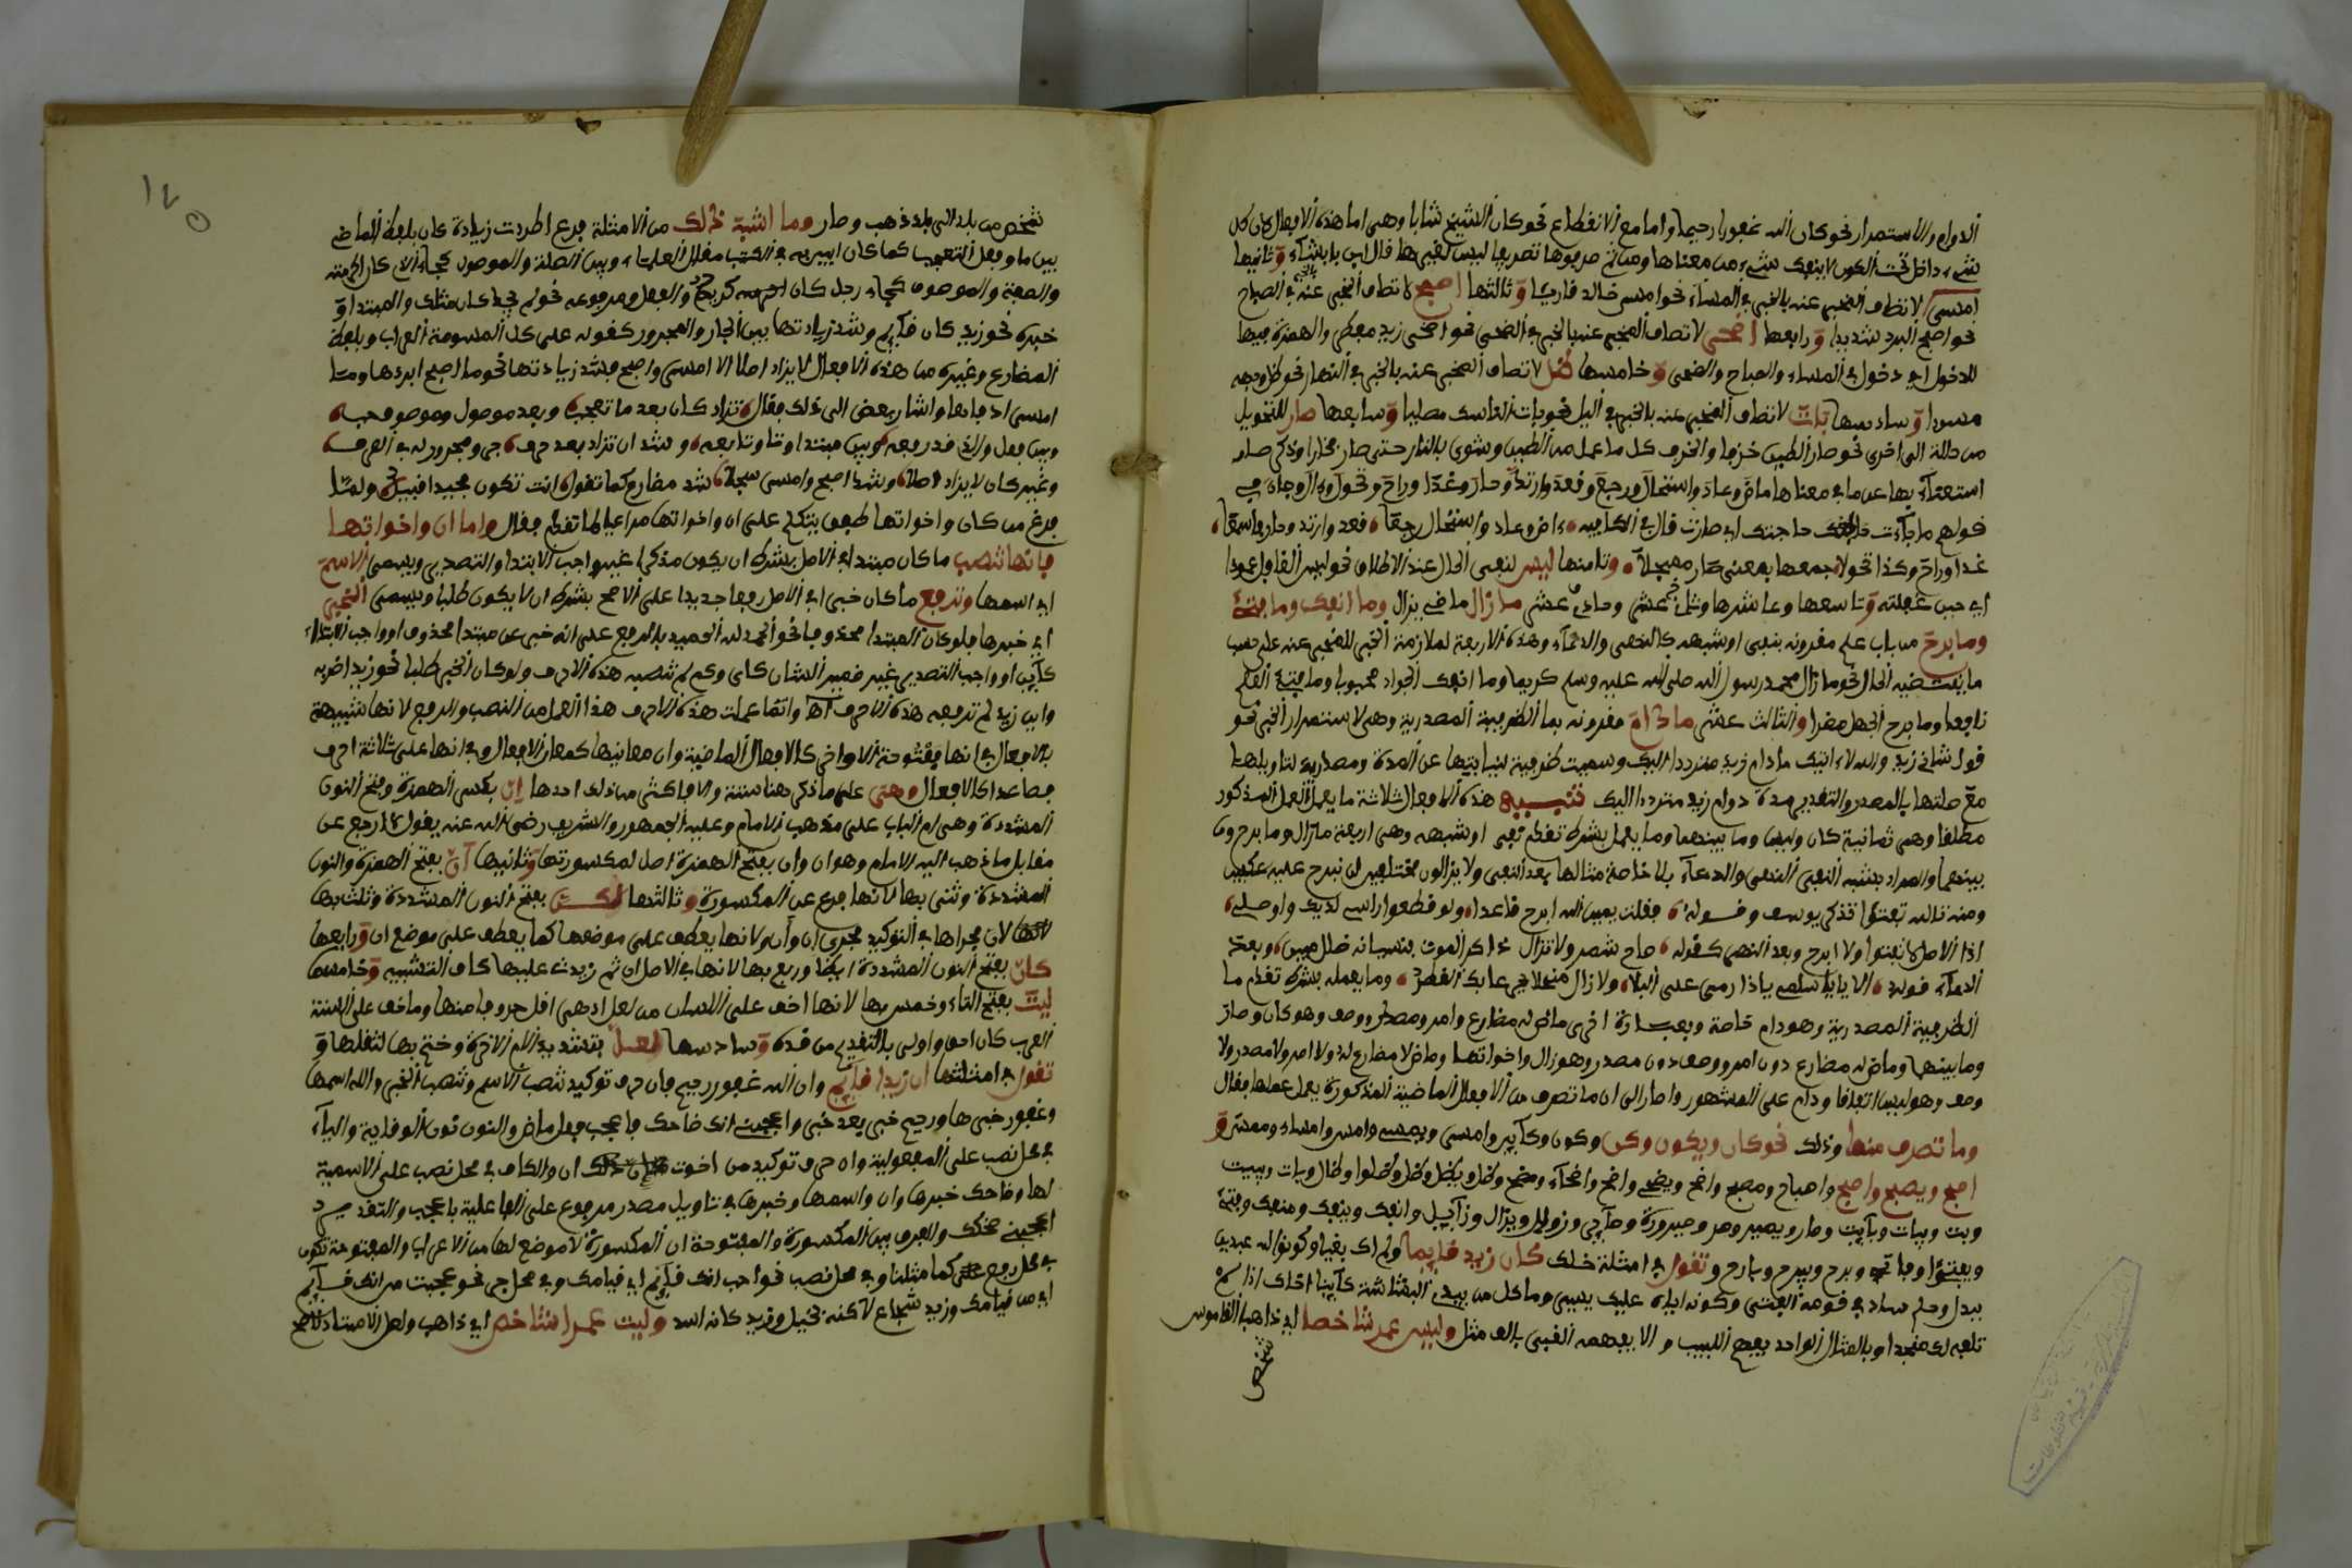 الدوام والاستمرار نحو كان الله غفورا رحيما واما مع الانقطاع نحو كان الشيخ شابا وهي اما هذه الافعال كان كل
شيء داخل تحت الكون لا ينفك شيء من معناها ومن ثم صرفوها تصريفا ليس لغيرها قال ابن بابشاذ وثانيها
امسى لاتصاف المخبر عنه بالخبر في المساء نحو امسى خالد قاريا وثالثها اصبح لاتصاف المخبر عنه بالخبر في الصباح
نحو اصبح البرد شديدا ورابعها اضحى لاتصاف المخبر عنه بالخبر في الضحى نحو اضحى زيد والهمزة فيها
للدخول اي دخول في المساء والصباح والضحى وخامسها ظل لاتصاف المخبر عنه بالخبر في النهار نحو ظل وجهه
مسودا وسادسها بات لاتصاف المخبر عنه بالخبر في اليل نحو بات الناسك مصليا وسابعها صار للتحويل
من حالة الى اخرى نحو صار الطين خزفا والخزف كل ما عمل من الطين وشوي بالنار حتى صار فخارا وذكر صار
استغناء بها عن ما في معناها ماض وعاد واستحال ورجع وقعد وارتد وحار وغدا وراح وتحول وءال وجاء في
قولهم ما جاءت حاجتك اي صارت قال في الكافيه ءاض وعاد واستحال رجعا قعد وارتد وحار
غدا وراح وكذا تحولا جمعها بمعنى صار وثامنها ليس لنفي الحال عند الاطلاق نحو ليس القائل
وتاسعها وعاشرها وحادي عشر وثاني عشر مازال ماضي يزال وما انفك وما فتئ
وما برح من باب علم مقرونة بنفي او شبهه كالنهي والدعاء وهذه الاربعة لملازمة الخبر للمخبر عنه على حسب
ما يقتضيه الحال نحو مازال محمد رسول الله صلى الله عليه وسلم كريما وما انفك الجواد محبوبا وما فتئ العلم
نافعا وما برح الجهل مضرا والثالث عشر مادام مقرونة بما الظرفية المصدرية وهي لاستمرار الخبر نحو
زيد والله لا اتيك مادام زيد مترددا اليك وسميت ظرفية لنيابتها عن المدة ومصدرية لتاويلها
مع صلتها بالمصدر والتقدير مدة دوام زيد مترددا اليك تنبيه هذه الافعال ثلاثة ما يعمل العمل المذكور
مطلقا وهي ثمانية كان وليس وما بينهما وما يعمل بشرط تقدم نفي او شبهه وهي اربعة مازال وما برح وما
بينهما والمراد بشبه النفي النهي والدعاء بلا خاصة مثالها بعد النفي ولا يزالون مختلفين لن نبرح عليه عكفين
ومنه تالله تفتؤا تذكر يوسف وقوله فقلت يمين الله ابرح قاعدا ولو قطعوا راسي لديك واوصالي
اذ الاصل لا تفتؤا ولا ابرح وبعد النهي كقوله صاح شمر ولا تزال ذاكر الموت فنسيانه ضلال مبين وبعد
الدعاء قوله الا يا اسلمي يا دار مي على البلا ولا زال منهلا بجرعائك القطر وما يعمله بشرط تقدم ما
الظرفية المصدرية وهو دام خاصة وبعبارة اخرى ماض له مضارع وامر ومصدر ووصف وهو كان وصار
وما بينهما وماض له مضارع دون امر ووصف دون مصدر وهو زال واخواتها وماض لا مضارع له ولا امر ولا مصدر ولا
وصف وهو ليس اتفاقا ودام على المشهور واشار الى ان ما تصرف من الافعال الماضية المذكورة يعمل عملها فقال
وما تصرف منها وذلك نحو كان ويكون وكن وكون وكآين وامسى ويمسي وامس وامساء وممس و
اصبح ويصبح واصبح واصباح ومصبح واضحى ويضحي واضح واضحاء ومضح وظل ويظل وظل وظلولا وظال وبات ويبيت
وبت وبيات وبآيت وصار ويصير وصر وصيرورة وصآير وزوال ويزال وزآيل وانفك وينفك ومنفك وفتئ
ويفتؤا وفاتئ وبرح ويبرح وبارح وتقول في امثلة ذلك كان زيد قايما ولم اك بغيا وكونوا لله عبدين
ببذل وحلم ساد في قومه الفتى وكونك اياه عليك يسير وما كل من يبدي البشاشة كآينا اخاك اذا لم
تلفه لك منجدا وبالمثال الواحد يفهم اللبيب و الا يفهمه الغبي بالف مثل وليس عمر شاخصا اي ذاهبا القاموس
شخص
١٢٥
شخص من بلد الى بلد ذهب وصار وما اشبه ذلك من الامثلة فرع اطردت زيادة كان بلفظ الماضي
بين ما وفعل التعجب كما كان
والصفة والموصوف كجاء رجل كان كريم والفعل ومرفوعه نحو لم يوجد كان مثلك والمبتدا و
خبره نحو زيد كان قآيم وشذ زيادتها بين الجار والمجرور كقوله على كان المسومة العراب وبلفظ
المضارع وغيره من هذه الافعال لا يزاد اصلا الا امسى واصبح فشذ زيادتها نحو ما اصبح ابردها وما
امسى ادفاها واشار بعض الى ذلك فقال تزاد كان بعد ما تعجب وبعد موصول وموصوف
وبين فعل والذي قد رفعه وبين مبتدا وتا وتابعه وشذ ان تزاد بعد حرف جر ومجرور له
وغير كان لا يزاد اصلا وشذ اصبح وامسى شذ مضارع كما تقول انت تكون مجيدا ولما
فرغ من كان واخواتها طفق يتكلم على ان واخواتها مراعيا لما تقدم فقال واما ان واخواتها
فانها تنصب ما كان مبتدا في الاصل بشرط ان يكون مذكورا غير واجب الابتدا والتصدير ويسمى الاسم
اي اسمها وترفع ما كان خبرا في الاصل رفعا جديدا على الاصح بشرط ان لا يكون طلبا ويسمى الخبر
اي خبرها فلو كان المبتدا محذوفا نحو الحمد لله الحميد بالرفع على انه خبر عن مبتدا محذوف او واجب الابتداء
كأين او واجب التصدير غير ضمير الشان كاي وكم لم تنصبه هذه الاحرف ولو كان الخبر طلبا نحو زيد اضربه
واين زيد لم ترفعه هذه الاحرف اه وانما عملت هذه الاحرف هذا العمل من النصب والرفع لانها شبيهة
بالافعال في انها مفتوحة الاواخر كالافعال الماضية وان معانيها كمعان الافعال وفي انها على ثلاثة احرف
فصاعدا كالافعال وهي على ما ذكر هنا ستة والا فاكثر من ذلك احدها ان بكسر الهمزة وفتح النون
المشددة وهي ام الباب على مذهب الامام وعليه الجمهور والشريف رضي الله عنه يقول لا ارجع عن
مقابل ما ذهب اليه الامام وهو ان وان بفتح الهمزة اصل لمكسورتها وثانيها ان بفتح الهمزة والنون
المشددة وثنى بها لانها فرع عن المكسورة وثالثها لكن بفتح النون المشددة وثلث بها
لان مجراها في التوكيد مجرى ان وأن ولانها يعطف على موضعها كما يعطف على موضع ان ورابعها
كان بفتح النون المشددة ايضا وربع بها لانها في الاصل ان ثم زيدت عليها كاف التشبيه وخامسها
ليت بفتح التاء وخمس بها لانها اخف على اللسان من لعل اذ هي اقل حروفا منها وما خف على السنة
العرب كان احق واولى بالتقديم من ضده وسادسها لعل بتشديد اللام الاخيرة وختم بها لثقلها و
تقول في امثلتها ان زيدا قآيم وان الله غفور رحيم فان حرف توكيد تنصب الاسم وتنصب الخبر والله اسمها
وغفور خبرها ورحيم خبر بعد خبر واعجبني انك ضاحك فاعجب فعل ماض والنون نون الوقاية واليآء
في محل نصب على المفعولية وان حرف توكيد من اخوت ان والكاف في محل نصب على الاسمية
لها وضاحك خبرها وان واسمها وخبرها في تاويل مصدر مرفوع على الفاعلية باعجب والتقدير
اعجبني ضحكك والفرق بين المكسورة والمفتوحة ان المكسورة لا موضع لها من الاعراب والمفتوحة تكون
في محل رفع كما مثلنا وفي محل نصب نحو احب انك قآيم اي قيامك وفي محل جر نحو عجبت من انك قآيم
اي من قيامك وزيد شجاع لاكنه بخيل وزيد كانه اسد وليت عمرا شاخص اي ذاهب ولعل